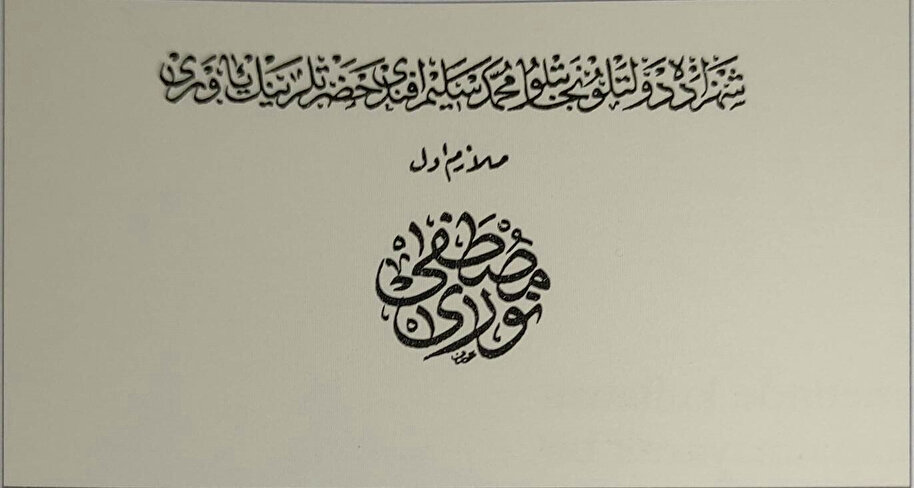 شهزاده دولتلو نجابتلو محمد سليم افندى حضرتلرينك ياورى
ملازم اول
مصطفى نورى